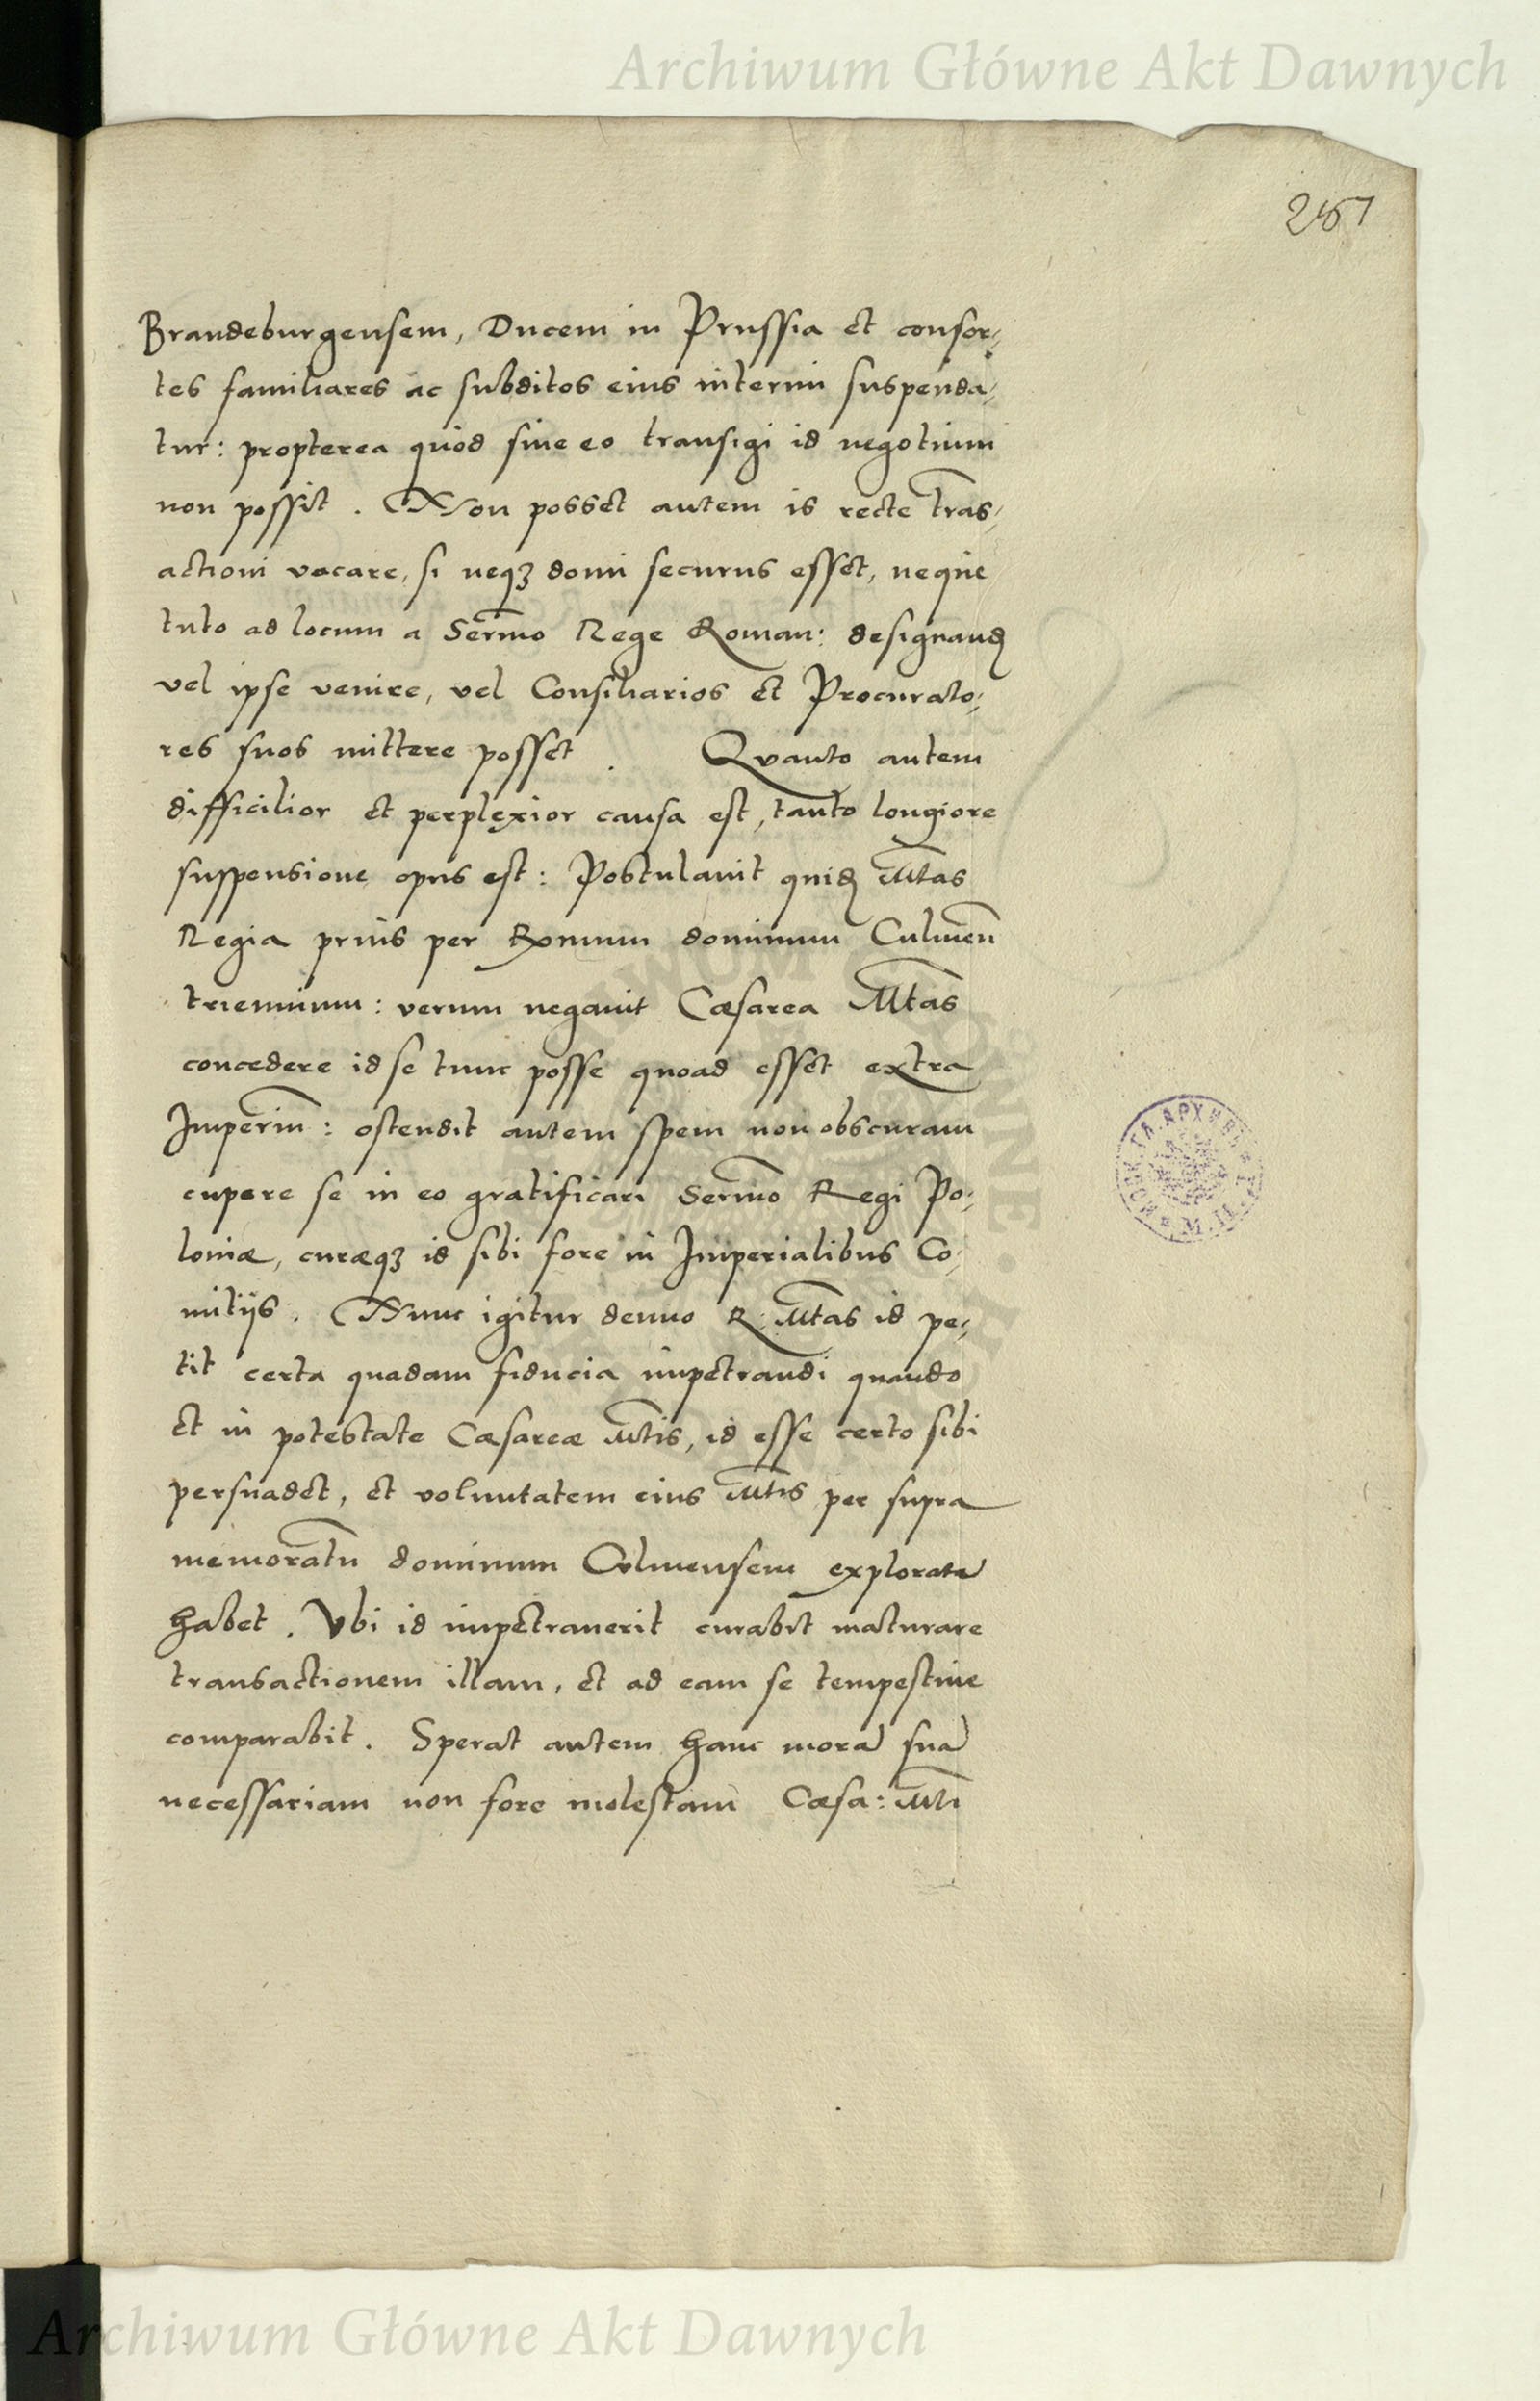 Archiwum Główne Akt Dawnych
Brandeburgensem, Ducem in Prussia et consor-
tes familiares ac subditos eius interim suspenda-
tur: propterea quod sine eo transigi id negotium
non possit. Non posset autem is recte tras-
actioni vacare, si neqz domi securus esset, neque
tuto ad locum a Sermo Rege Roman: designand
vel ipse venire, vel Consiliarios et Procurato-
res suos mittere posset. Quanto autem
difficilior et perplexior causa est, tanto longiore
suspensione opus est: Postulauit quid Mtas
Regia prius per Rxmum dominum Culmen
triennium: verum negauit Cæsarea Mtas
concedere id se tunc posse quoad esset extra
Imperiu: ostendit autem spem non obscuram
cupere se in eo gratificari Sermo Regi Po-
loniæ, curæqz id sibi fore in Imperialibus Co-
mitijs. Nunc igitur denuo R. Mtas id pe-
tit certa quadam fiducia impetrandi quando
et in potestate Cæsareæ Mtis, id esse certo sibi
persuadet, et voluntatem eius Mtis per supra
memoratu dominum Culmensem explorata
habet. Vbi id impetrauerit curabit maturare
transactionem illam, et ad eam se tempestiue
comparabit. Sperat autem hanc mora sua
necessariam non fore molestam Cæsa: Mti
Archiwum Główne Akt Dawnych